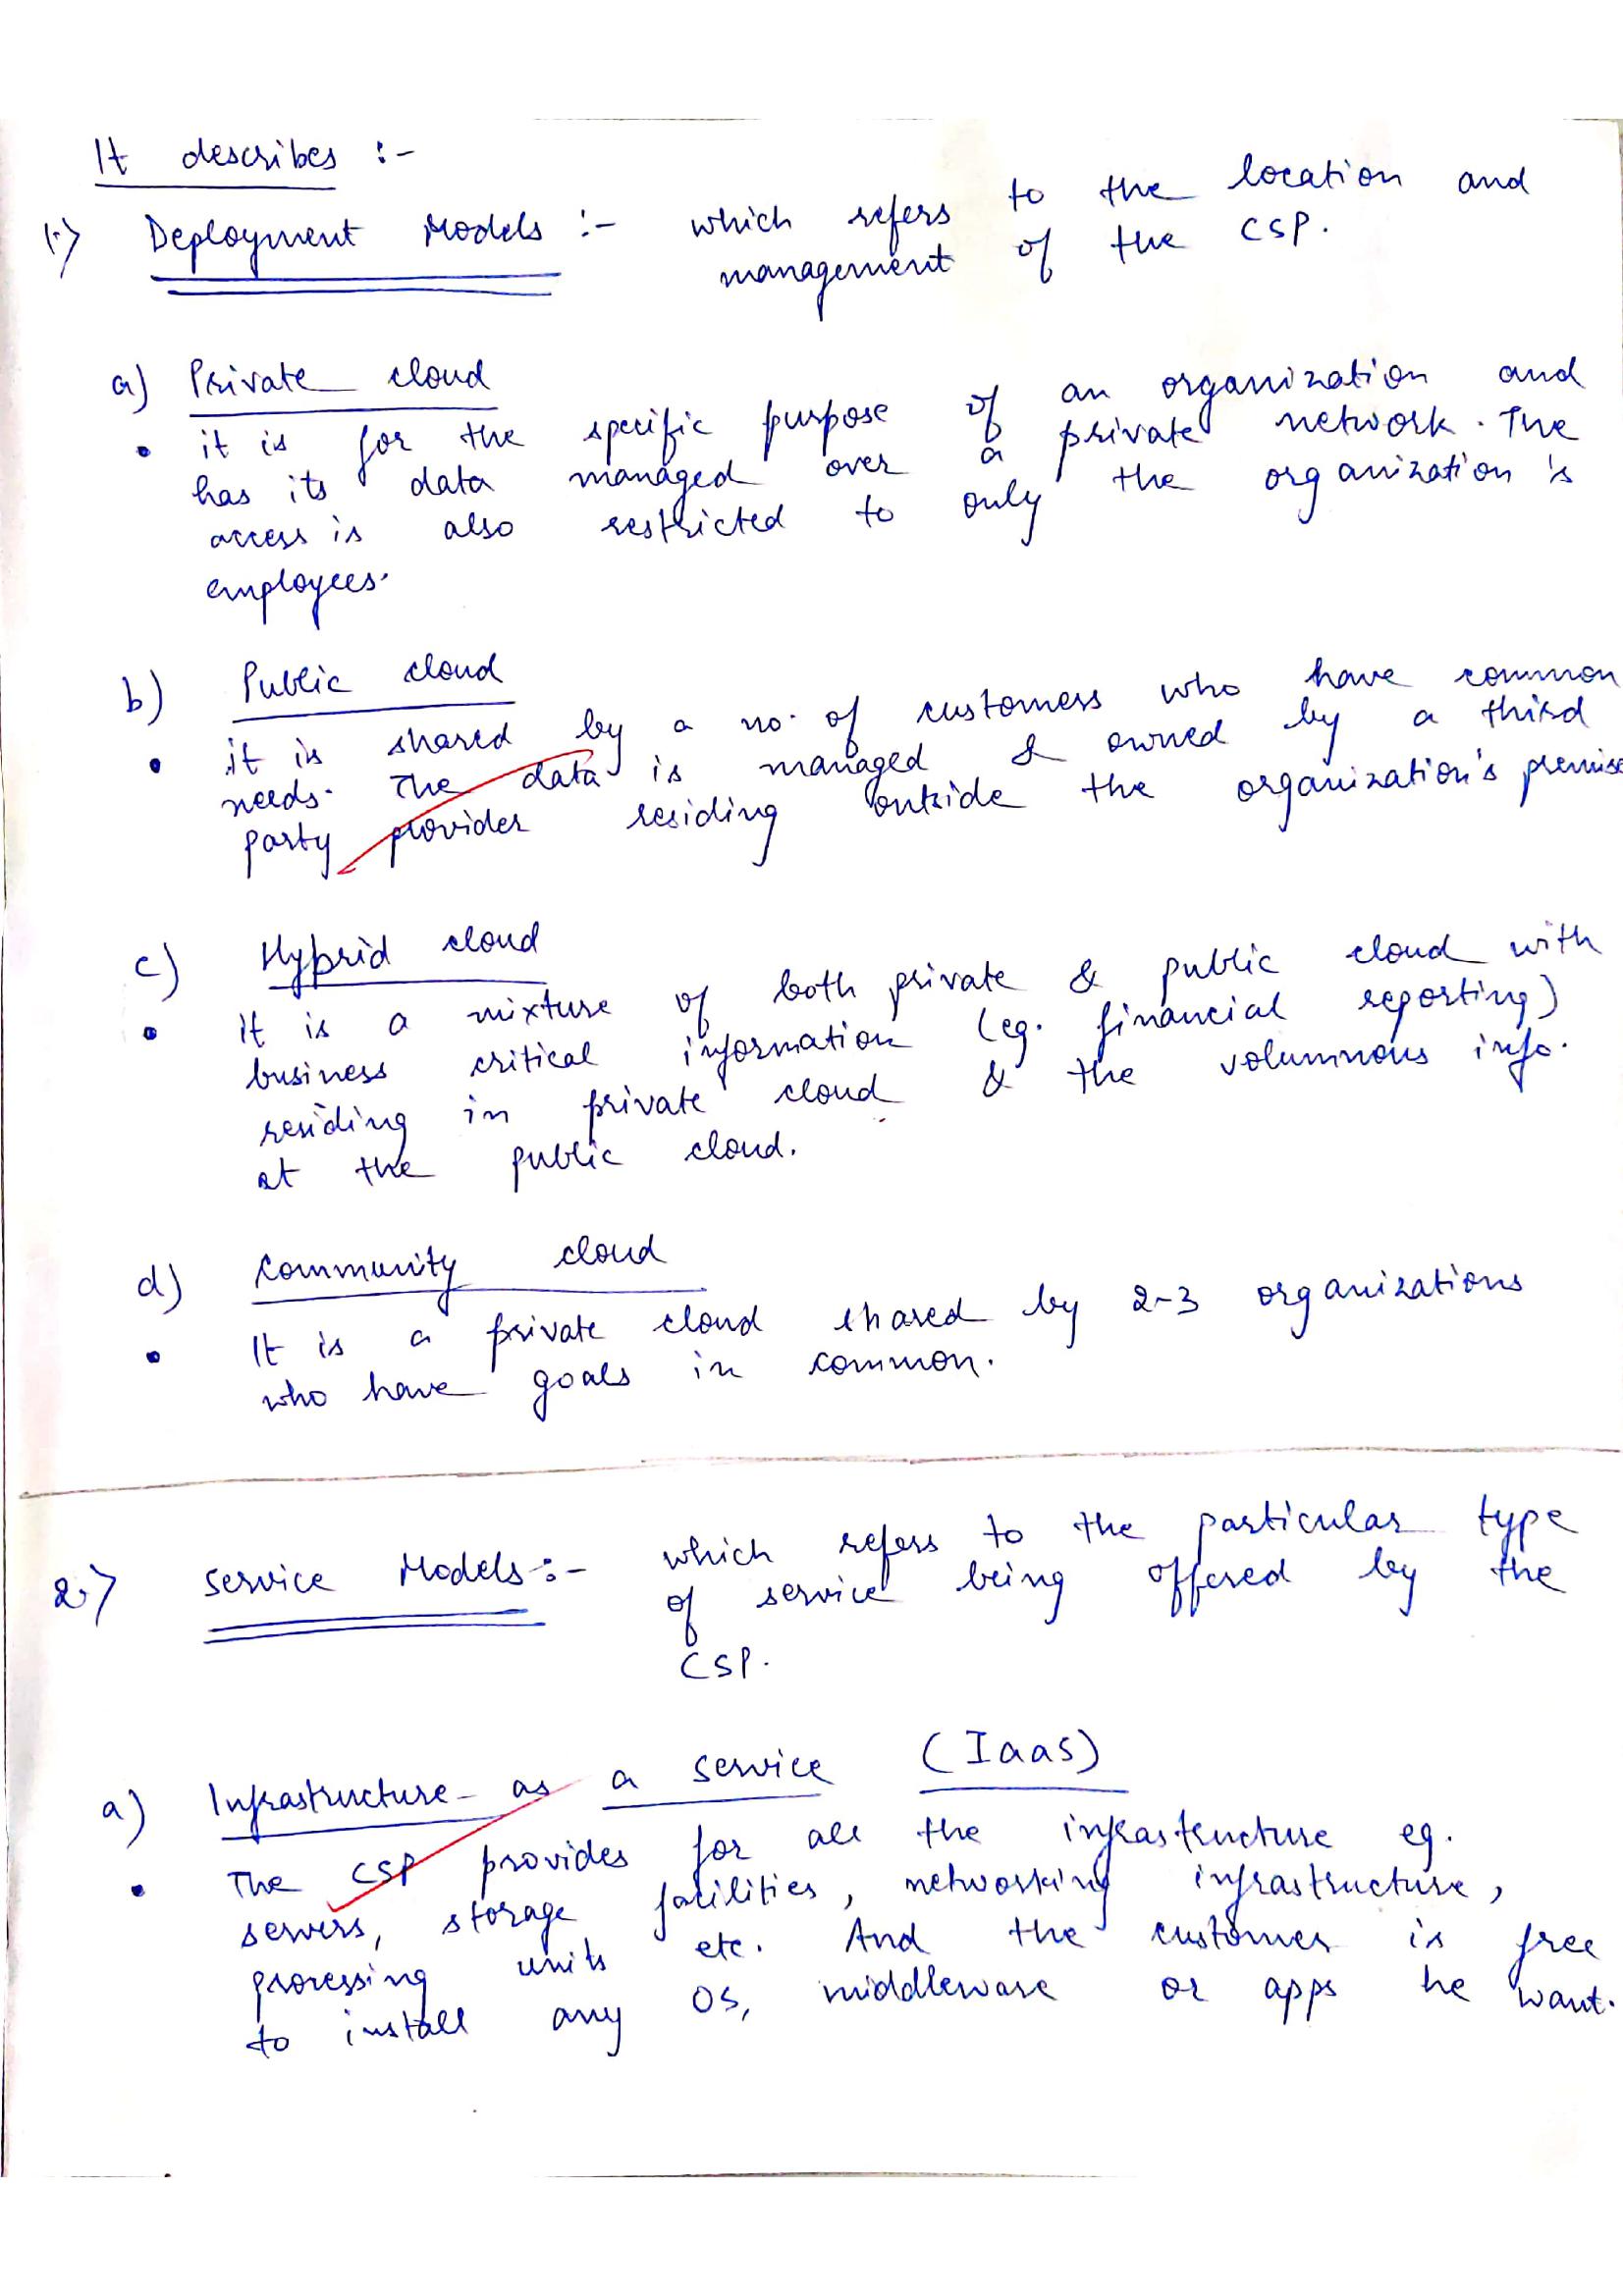 It describes :-
1.) Deployment Models :- which refers to the location and
management of the CSP.
a) Private cloud
• it is for the specific purpose of an organization and
has its data managed over a private network. The
access is also restricted to only the organization's
employees.
b) Public cloud
• it is shared by a no. of customers who have common
needs. The data is managed & owned by a third
party provider residing outside the organization's premise
c) Hybrid cloud
• it is a mixture of both private & public cloud with
business critical information (eg. financial reporting)
residing in private cloud & the voluminous info.
at the public cloud.
d) Community cloud
• It is a private cloud shared by 2-3 organizations
who have goals in common.
2.) Service Models :- which refers to the particular type
of service being offered by the
CSP.
a) Infrastructure as a service (IaaS)
• The CSP provides for all the infrastructure eg.
servers, storage facilities, networking infrastructure,
processing units etc. And the customer is free
to install any OS, middleware or apps he want.